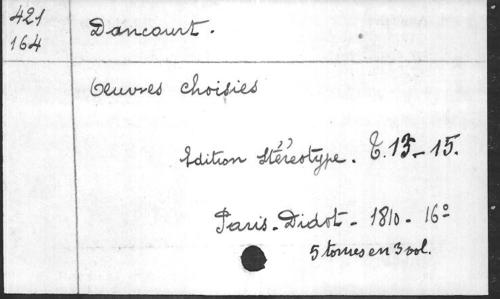 421
164
Dancourt.
Œuvres choisies
Édition stéréotype. T. 13-15.
Paris. Didot - 1810 - 16º
5 tomes en 3 vol.